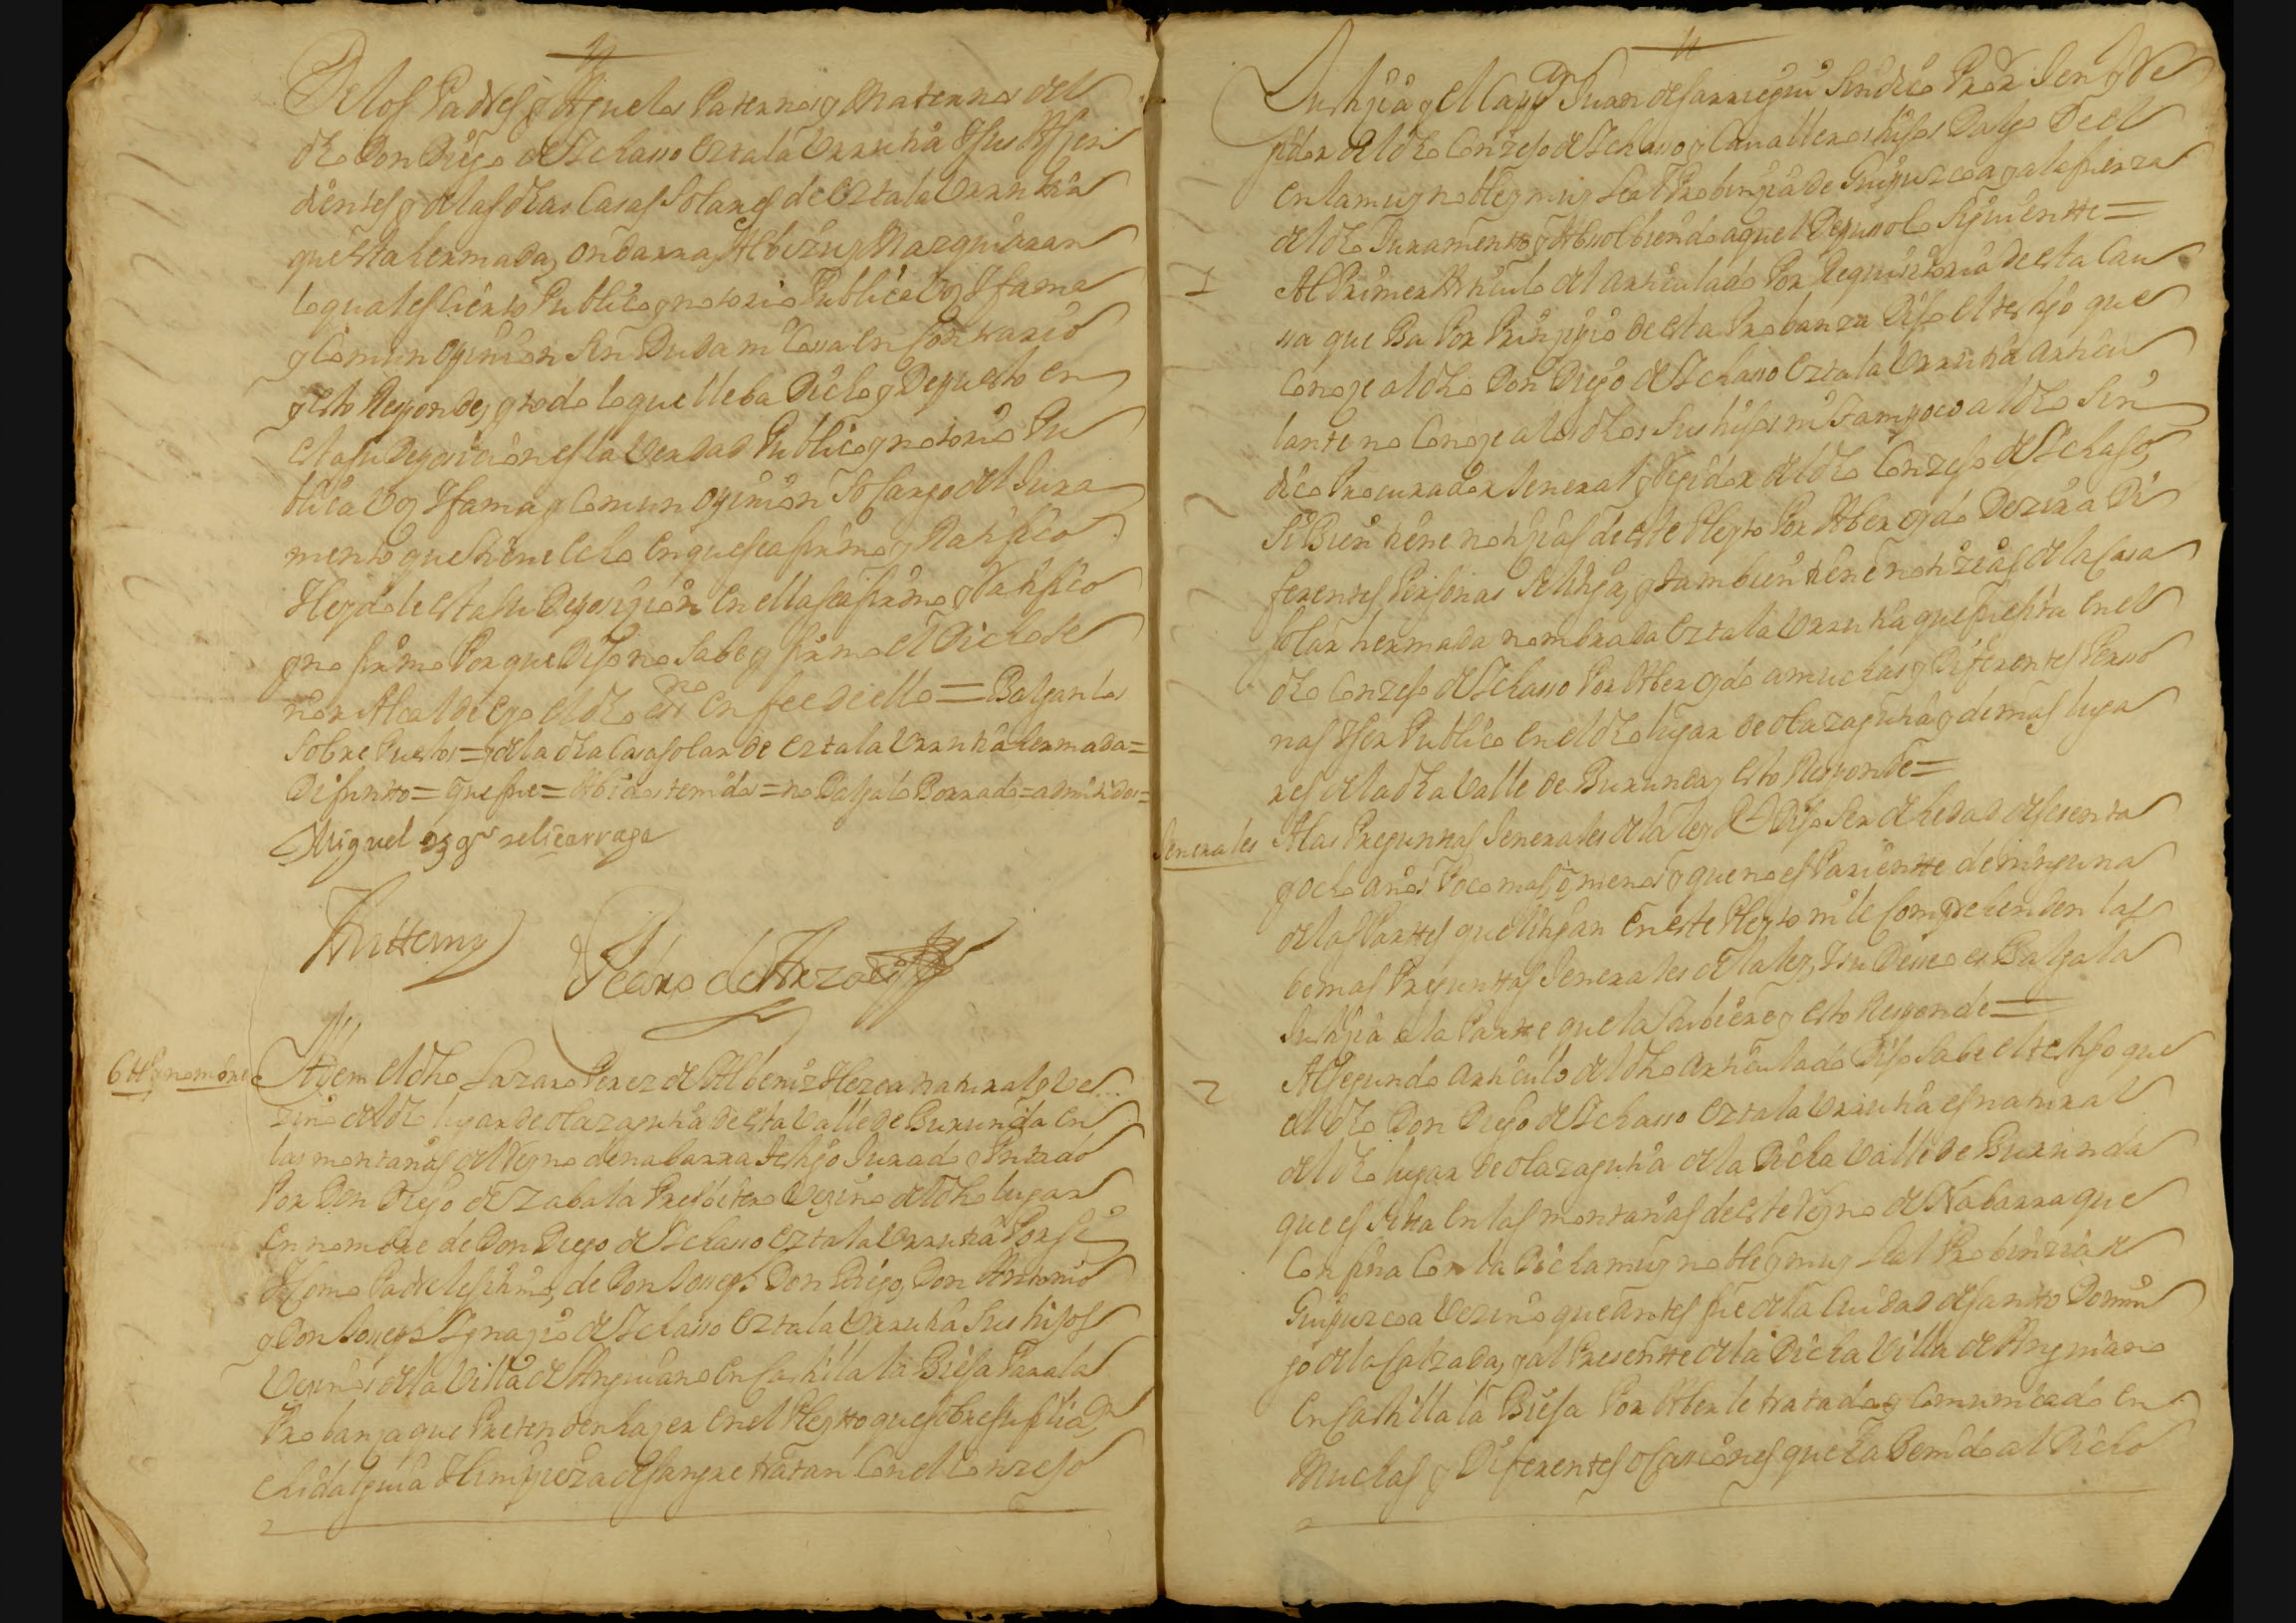 De los Padres y Aguelos Paternos y Maternos del
dho Don Diego de Echasso Eztala Urrutia Y sus Aszen
dientes y de las dhas Casas Solares de Eztala Urrutia
que esta hermada, Ondarra, Albizu y Mazquiaran
lo qual es Cierto Publico y notorio Publica Voz Y fama
y Comun Opinion Sin Duda ni Cossa en Contrario
y esto Responde, y todo lo que lleba Dicho y Depuesto en
esta su Deposicion es la Verdad Publico y notorio Pu
blica Voz Y fama y Comun Opinion So Cargo del Jura
mento que tiene echo en que se afirmo y Ratifico
Y leydole esta su Deposizion en ella se afirmo y Ratifico
y no firmo Porque Dijo no Sabe y firmo el Dicho Se
ñor Alcalde e yo el dho essno en fee de ello = Balgan los
Sobre Puestos = y de la dha Casa Solar de Eztala Urrutia hermada =
Difunto = que fue = Abidos tenidos = no Balga lo Borrado = admitidos =
Miguel
Ante my
Pedro de
6 tt.º nombre
Ittem el dho Lazaro Perez de Albeniz Y Lezea natural y Ve
zino del dho lugar de olazagutia de esta Valle de Burunda en
las montañas del Reyno de nabarra testigo Jurado y Pntado
Por Don Diego de Zabala Presbitero Vezino del dho lugar
en nombre de Don Diego de Echasso Eztala Urrutia Por si
Y Como Padre lexitimo, de Don Joseph, Don Diego, Don Antonio
y Don Joseph Ygnazio de Echasso Eztala Urrutia Sus hijos
Vezinos de la Villa de Anguiano en Castilla la Bieja Para la
Probanza que Pretenden hazer en el Pleyto que sobre su filiaon
e hidalguia Y limpieza de sangre tratan Con el Conzejo
Justizia y el Cappn Juan de Sarriegui Sindico Pror Jen y Re
gidor del dho Conzejo de Echasso y Cavalleros hijos Dalgo De el
en la muy noble y muy Leal Probinzia de Guipuzcoa y a la fuerza
del dho Juramento y Absolbiendo a aquel Depuso lo Siguientte =
1 Al Primer Articulo del articulado Por Requisitoria de esta Cau
sa que Ba Por Prinzipio de esta Probanza Dijo el testigo que
Conoze al dho Don Diego de Echasso Eztala Urrutia articu
lante no Conoze a los dhos Sus hijos ni tampoco al dho Sin
dico Procurador Jeneral y Regidor del dho Conzejo de Echaso,
Si Bien tiene notizias de este Pleyto Por Aber oydo Dezir a Di
ferentes Personas Se litiga, y tambien tiene notizias de la Casa
Solar hermada nombrada Eztala Urrutia que fue sita en el
dho Conzejo de Echasso Por Aber oydo a muchas y Diferentes Perso
nas Y ser Publico en el dho lugar de olazagutia y demas luga
res de la dha Valle de Burunda y esto Responde =
Jenerales
A las Preguntas Jenerales de la ley Rl Dijo Ser de hedad de sesenta
y ocho años Poco mas, o menos y que no es Parientte de ninguna
de las Partes que litigan en este Pleyto ni le Comprehenden las
demas Preguntas Jenerales de la ley, Y su Deseo es Balga la
Justizia a la Partte que la tubiere y esto Responde =
2 Al Segundo Articulo del dho articulado Dijo Sabe el testigo que
el dho Don Diego de Echasso Eztala Urrutia es natural
del dho lugar de olazagutia de la Dicha Valle de Burunda
que es Sitta en las montañas de este Reyno de Nabarra que
Confina Con la Dicha muy noble y muy Leal Probinzia de
Guipuzcoa Vezino que antes fue de la Ciudad de Santto Domin
go de la Calzada, y al Presentte de la Dicha Villa de Anguiano
en Castilla la Bieja Por Aberle tratado y Comunicado en
Muchas y Diferentes ocasiones que ha Benido al Dicho